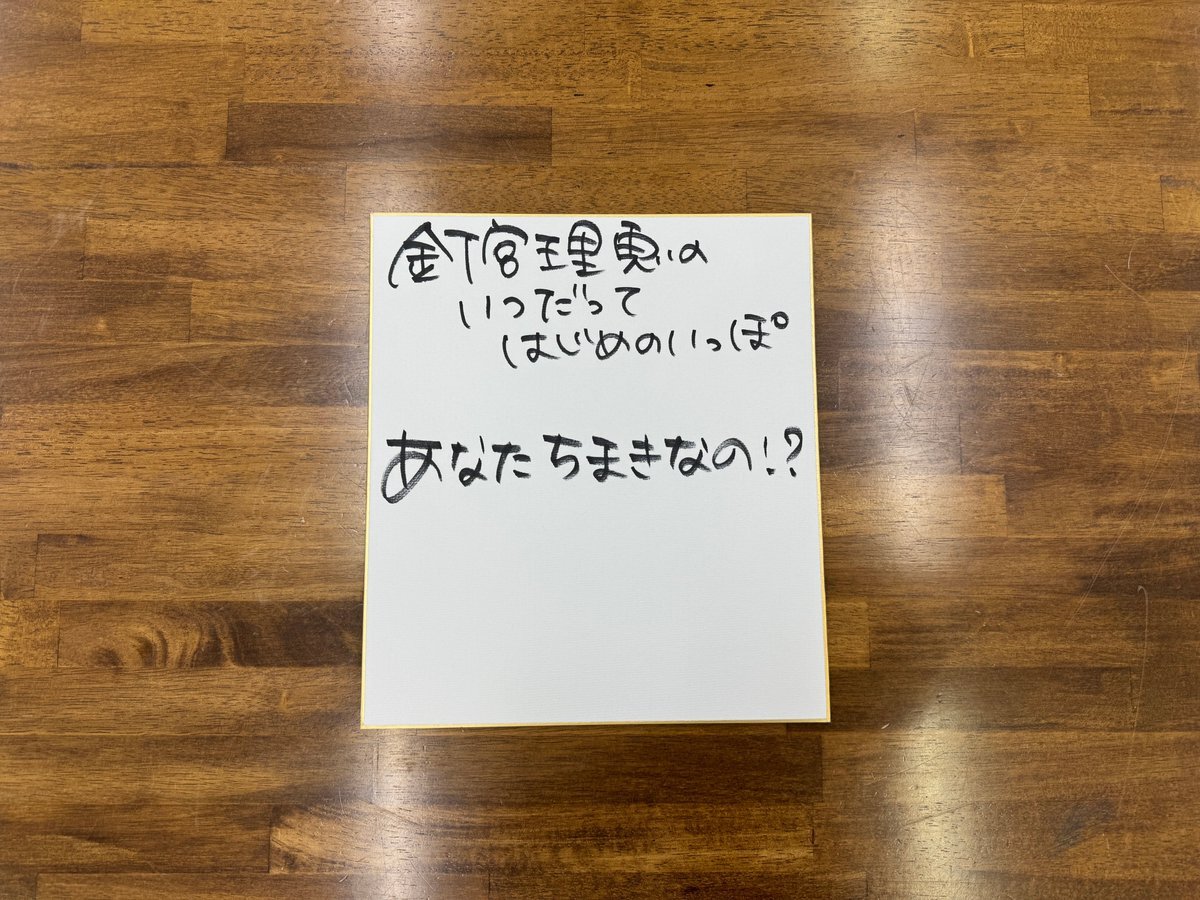 釘宮理恵の
いつだって
はじめのいっぽ
あなたちまきなの!?